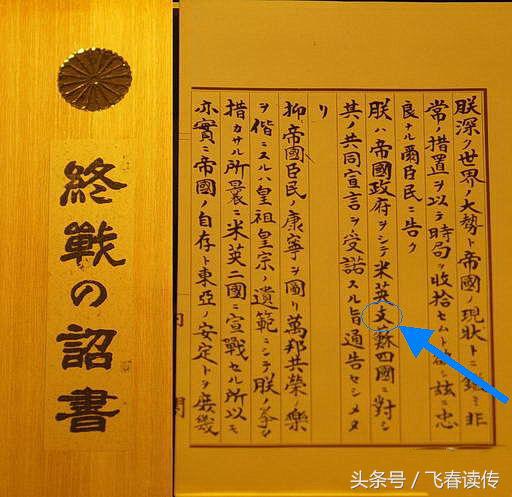 終戰の詔書
朕深ク世界ノ大勢ト帝國ノ現狀トニ鑑ミ非
常ノ措置ヲ以テ時局ヲ收拾セムト欲シ茲ニ忠
良ナル爾臣民ニ告ク
朕ハ帝國政府ヲシテ米英支蘇四國ニ對シ
其ノ共同宣言ヲ受諾スル旨通告セシメタ
リ
抑帝國臣民ノ康寧ヲ圖リ萬邦共榮ノ樂
ヲ偕ニスルハ皇祖皇宗ノ遺範ニシテ朕ノ拳々
措カサル所曩ニ米英二國ニ宣戰セル所以モ
亦實ニ帝國ノ自存ト東亞ノ安定トヲ庶幾
头条号 / 飞春读传